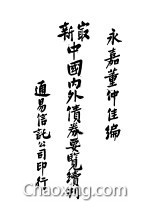 永嘉董仲佳編
最新中國內外債券要覽續刊
通易信託公司印行
Chaoxing.com